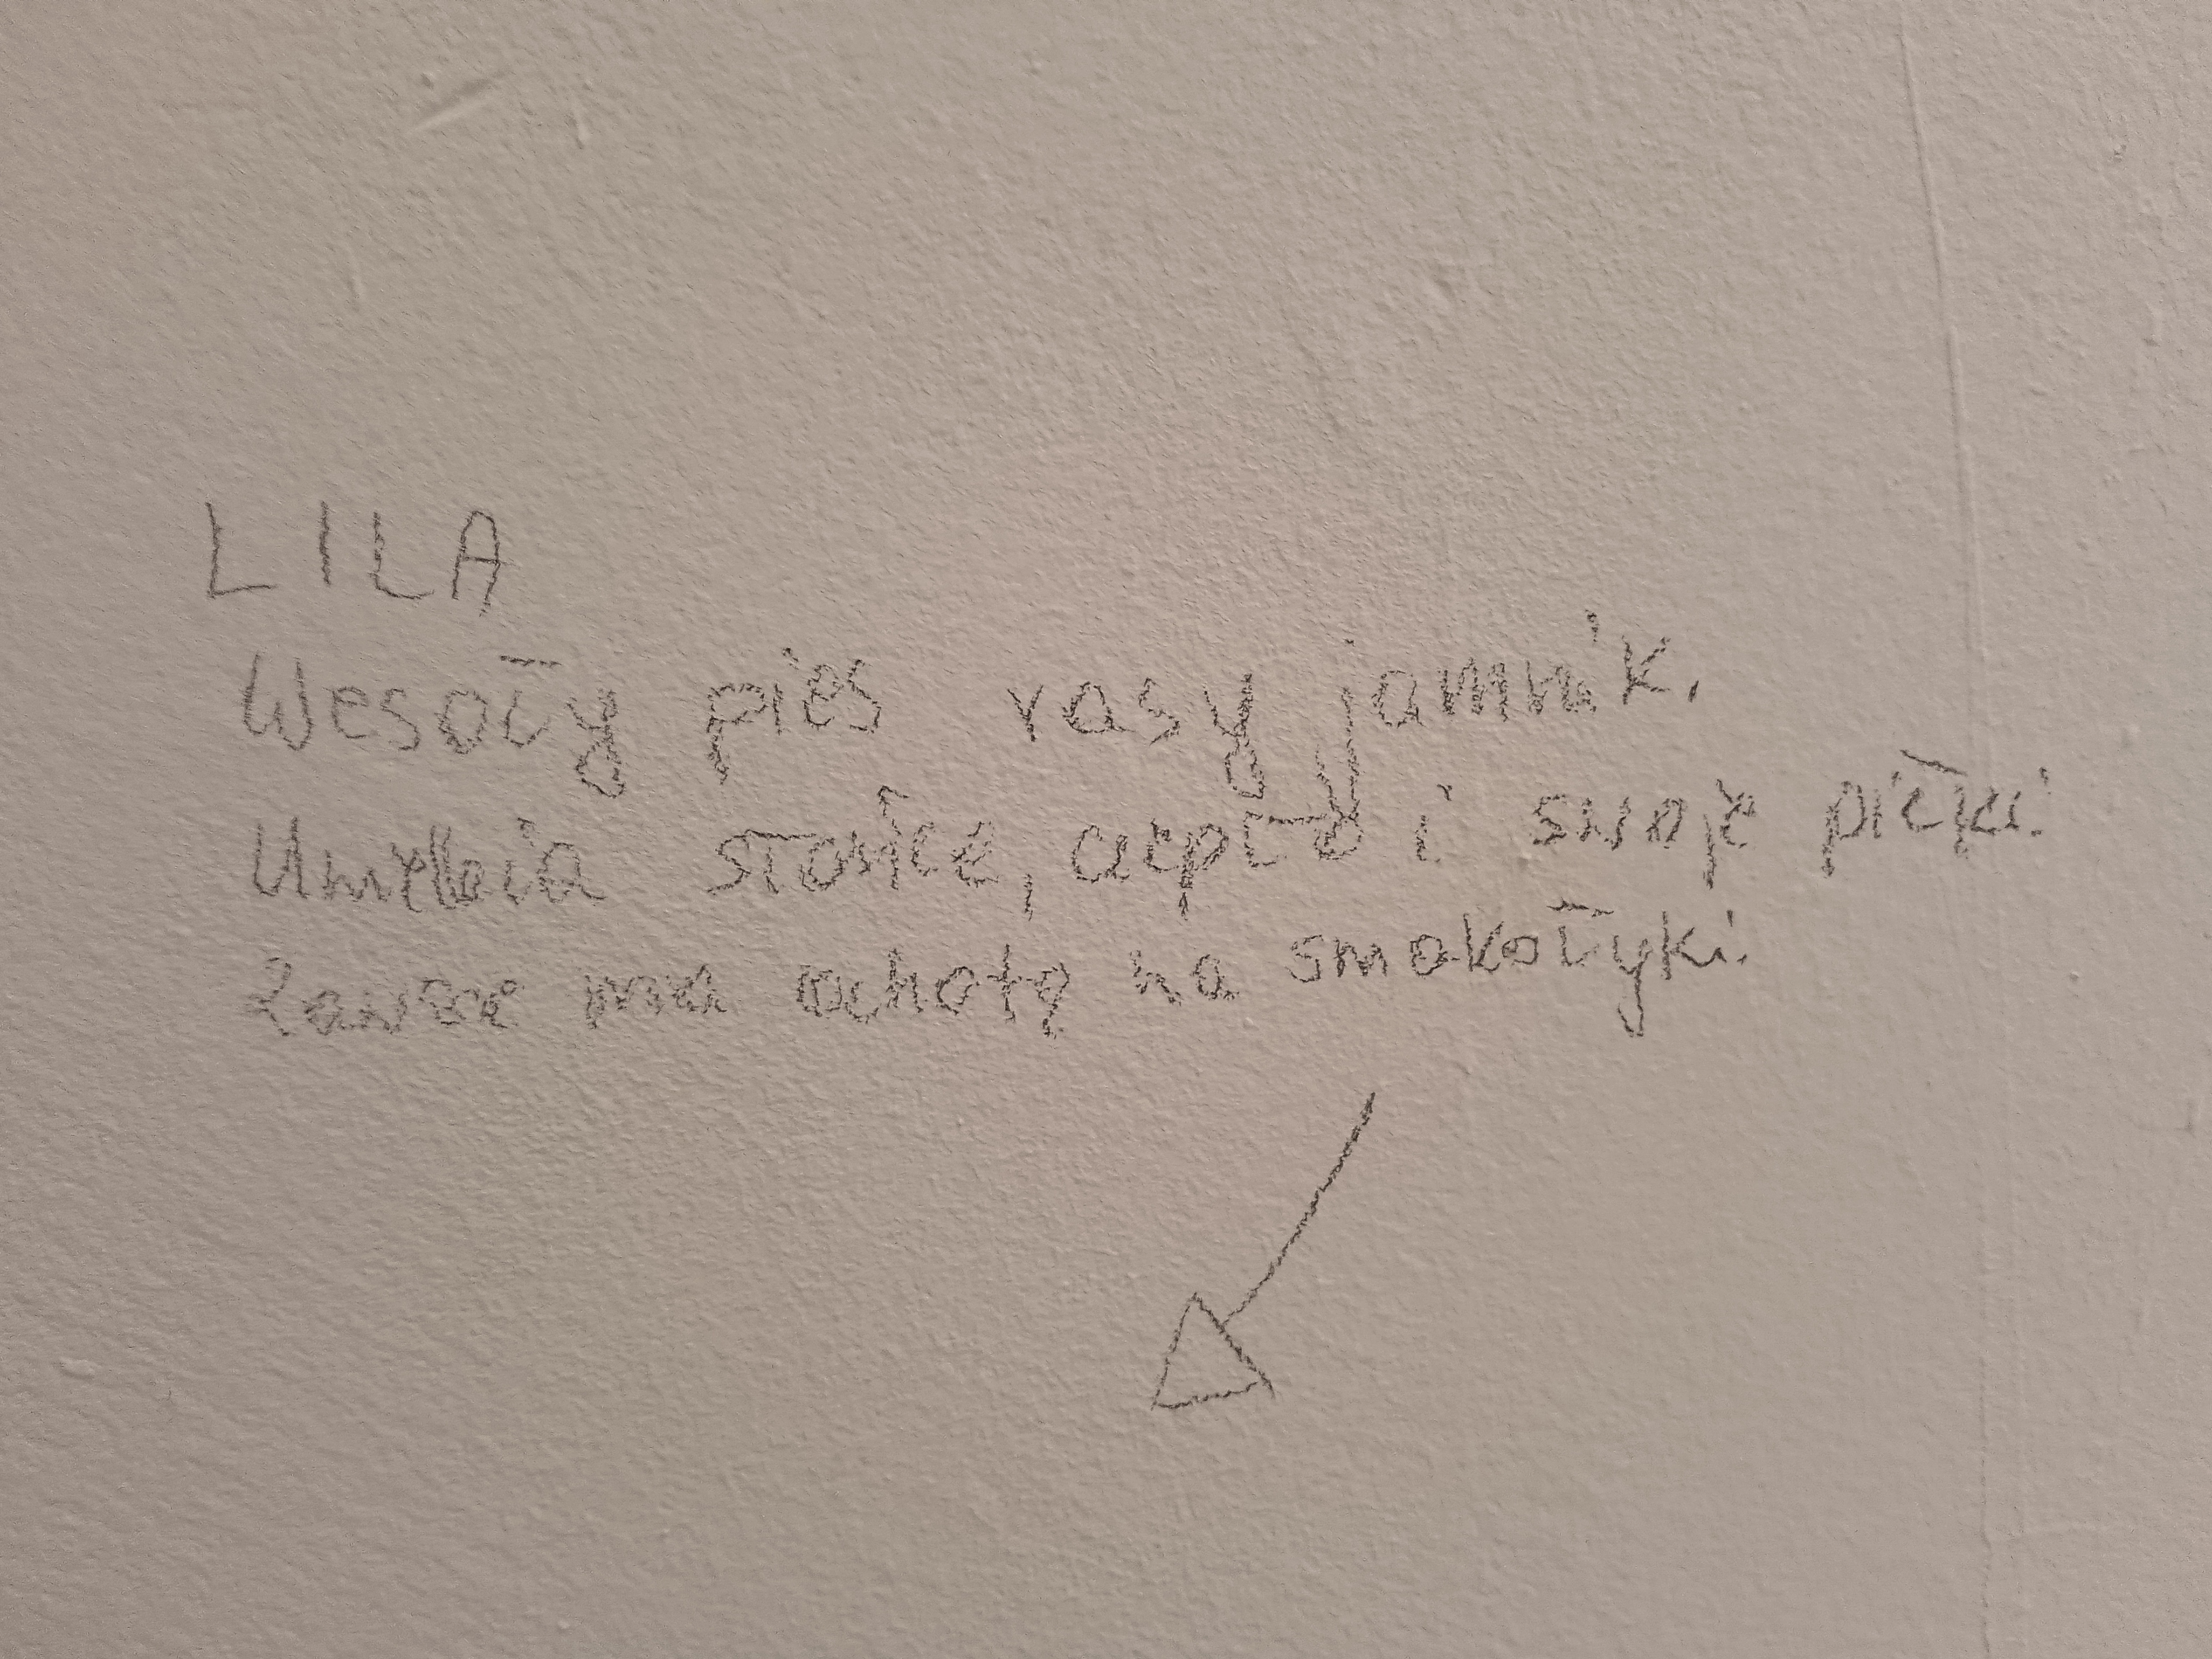 LILA
Wesoły pies rasy jamnik.
Uwielbia słońce, ciepło i swoje piłki.
Zawsze ma ochotę na smakołyki.